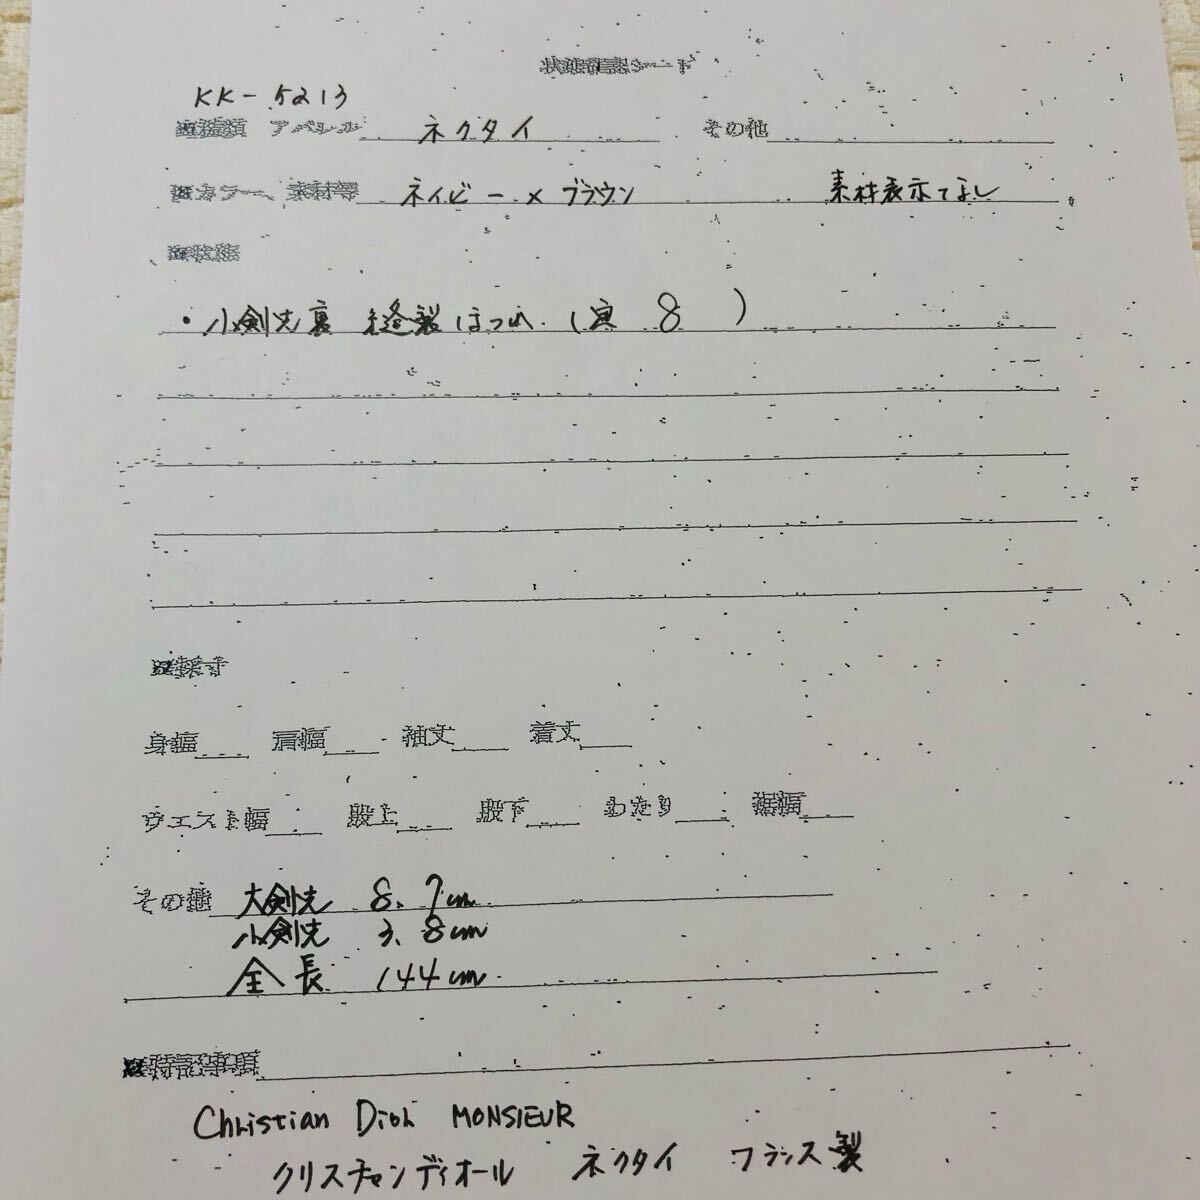 状態確認シート
KK-5213
■種類 アパレル ネクタイ その他
■カラー、素材等 ネイビー×ブラウン 素材表示なし
■状態
・小剣先裏 縫製ほつれ (写 8 )
■採寸
身幅 肩幅 袖丈 着丈
ウエスト幅 股上 股下 わたり 裾幅
その他 大剣先 8.7cm
小剣先 3.8cm
全長 144cm
■特記事項
Christian Dior MONSIEUR
クリスチャンディオール ネクタイ フランス製